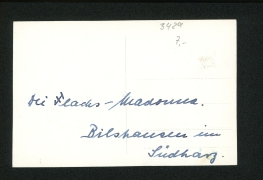 342
7,-
Die Flachs-Madonna.
Bilshausen im
Südharz.